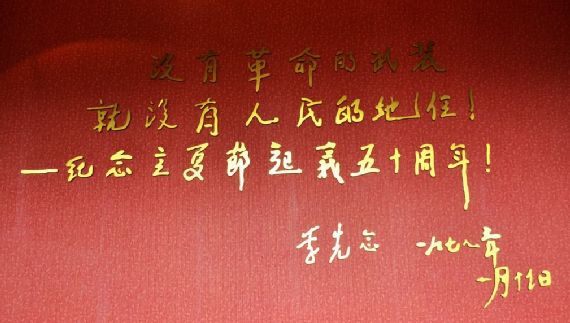 没有革命的武装
就没有人民的地位!
—纪念立夏節起義五十周年!
李先念 一九七八年
一月